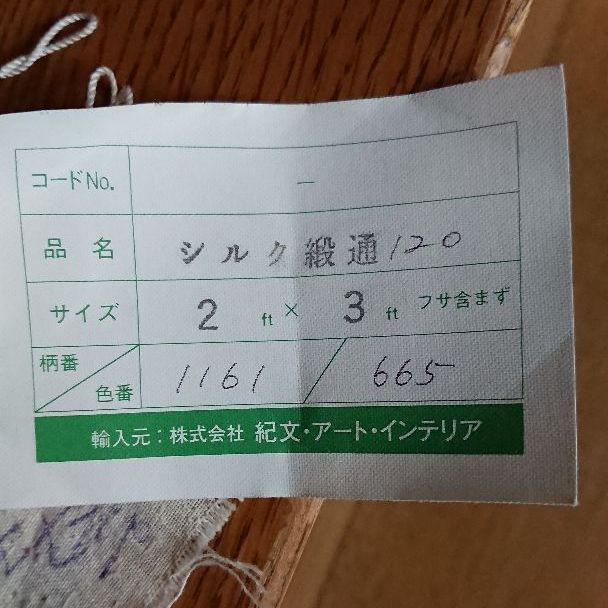 コードNo. −
品名 シルク緞通120
サイズ 2 ft × 3 ft フサ含まず
柄番／色番 1161／665
輸入元：株式会社 紀文・アート・インテリア